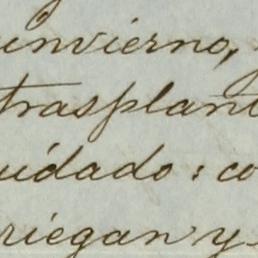 invierno,
trasplant
uidado: co
riegan y